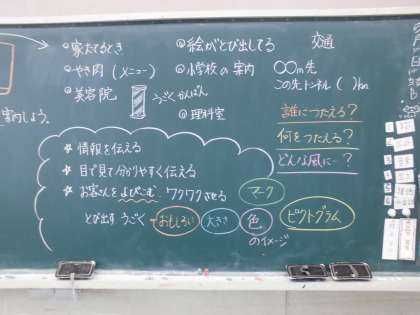 ・家たてるとき
・やき肉(メニュー)
・美容院
うごくかんばん
・絵がとび出してる
・小学校の案内
・理科室
交通
〇〇m先
この先トンネル( )km
案内しよう。
誰につたえる?
何をつたえる?
どんな風に…?
☆ 情報を伝える
☆ 目で見て分りやすく伝える
☆ お客さんをよびこむ、ワクワクさせる
とび出す うごく
おもしろい
大きさ
色
のイメージ
マーク
ピクトグラム